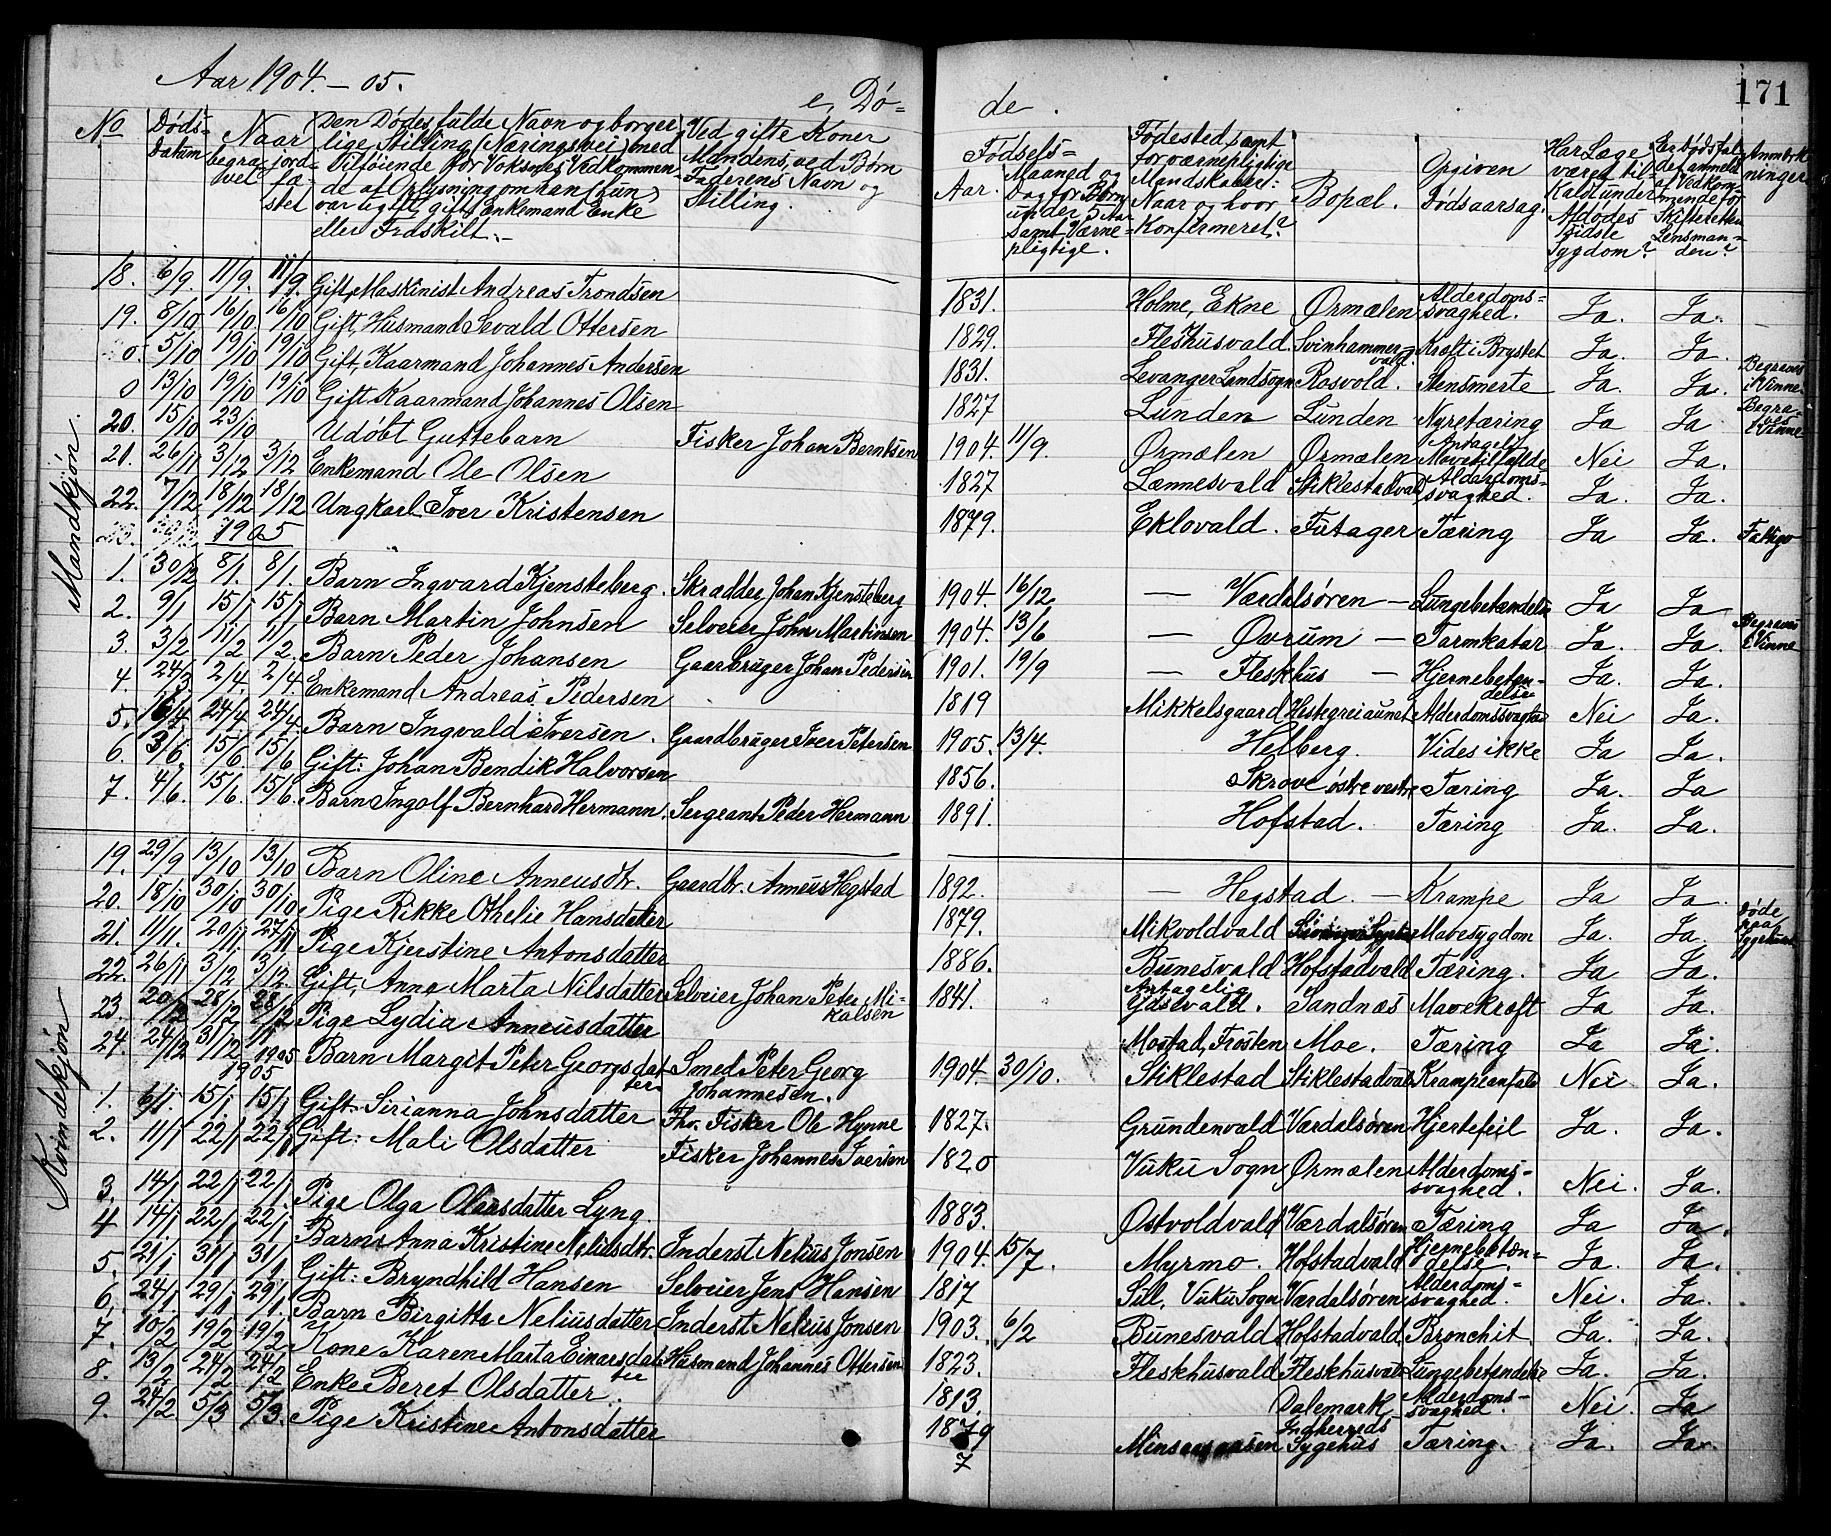 Aar 1904. – 05.
e, Dø-
de.
171
No
Døds-
datum
Naar
begra-
vet
jord-
fæ-
stet
Den Dødes fulde Navn og borger
lige Stilling (Næringsvei) med
Tilføiende for Voksnes Vedkommen-
de af Oplysning om han (hun)
var ugift, gift, Enkemand Enke
eller Fraskilt.
Ved gifte Koner
Mandens, ved Børn
Faderens Navn og
Stilling.
Fødsels-
Aar.
Maaned og
Dag for Børn
under 5 Aar
samt Værne-
pligtige.
Fødested samt
for værnepligtige
Mandskaber:
Naar og hvor
Konfirmeret?
Bopæl.
Opgiven
Dødsaarsag.
Har Læge
været til-
kaldt under
Afdødes
sidste
Sygdom?
Er Dødsfal
det anmeldt
af Vedkom-
mende for
Skifteretten
Lensman-
den?
Anmærk
ninger
Mandkjøn.
18. 6/9. 11/9. 11/9. Gift, Maskinist Andreas Trondsen 1831. Holme, Ekne Ørmælen Alderdoms-
svaghed. Ja. Ja.
19. 8/10 16/10 16/10 Gift, Husmand Sevald Ottersen 1829. Fleshusvald. Svinhammer-
vald Kræft i Brystet Ja. Ja.
0 5/10 19/10 19/10 Gift, Kaarmand Johannes Andersen 1831. Levanger Landsogn Rosvold. Stensmerte Ja. Ja. Begraves
i Vinne
0 13/10 19/10 19/10 Gift Kaarmand Johannes Olsen 1827 Lunden Lunden Nyretæring Ja Ja Begra-
ves
i Vinne
20. 15/10 23/10 Udøbt Guttebarn Fisker Johan Berntsen 1904. 11/9. Ørmælen Ørmælen Antagelig
Mavetilfælde Nei Ja.
21. 26/11 3/12 3/12 Enkemand Ole Olsen 1827 Lænnesvald Stiklestadvald Alderdoms-
svaghed. Ja. Ja.
22. 7/12 18/12 18/12 Ungkarl Iver Kristensen 1879. Eklovald. Futager Tæring Ja Ja.
1905
1. 30/12 8/1. 8/1. Barn Ingvard Kjensteberg. Skrædder Johan Kjensteberg 1904. 16/12. — Værdalsøren — Lungebetændelse Ja Ja
2. 9/1 15/1 15/1 Barn Martin Johnsen Selveier John Martinsen 1904. 13/6 — Ovrum — Tarmkatar Ja. Ja. Begraves
i Vinne
3. 3/2 11/2 11/2. Barn Peder Johansen Gaarbruger Johan Pedersen 1901. 19/9 — Fleskhus — Hjernebeten-
delse Ja. Ja.
4. 24/3. 2/4. 2/4. Enkemand Andreas Pedersen 1819 Mikkelsgaard Hestegreiaunet Alderdomssvaghed Nei Ja.
5. 16/4 24/4 24/4. Barn Ingvald Iversen. Gaardbruger Iver Petersen 1905. 13/4. Helberg. Vides ikke Ja Ja.
6. 3/6. 15/6 15/6 Gift: Johan Bendik Halvorsen 1856. Skrove østre vestre Tæring Ja. Ja
7. 4/6. 15/6. 15/6. Barn Ingolf Bernhard Hermann. Sergeant Peder Hermann 1891. Hofstad. Tæring Ja. Ja.
Kvindekjøn
19. 29/9 13/10 13/10 Barn Oline Anneusdtr. Gaardbr. Anneus Hegstad 1892. — Hegstad. — Krampe Ja Ja.
20. 18/10 30/10 30/10 Pige Rikke Othelie Hansdatter 1879. Mikvoldvald Mavesygdom Ja. Ja. Døde
paa
Sygehuset
21. 11/11. 20/11. 27/11 Pige Kjerstine Antonsdatter 1886. Bunesvald Hofstadvald Tæring. Ja Ja
22. 26/11 3/12 3/12. Gift, Anna Marta Nilsdatter Selveier Johan Peter Mi-
kalsen 1841. Antagelig
Ydsevald. Sandnæs Mavekræft Ja Ja
23. 20/12 28/12 28/12 Pige Lydia Anneusdatter Mostad, Frosten Moe. Tæring Ja Ja.
24. 24/12 31/12 1/1 1905 Barn Margit Peter Georgsdat-
ter Smed Peter Georg
Johannesen. 1904. 30/10. Stiklestad Stiklestadvald Krampeanfald Nei Ja.
1905
1. 6/1. 15/1 15/1 Gift. Sirianna Johnsdatter Fhv. Fisker Ole Hynne 1827. Grundenvald Værdalsøren Hjertefeil Ja. Ja.
2. 11/1 22/1 22/1 Gift: Mali Olsdatter Fisker Johannes Iversen 1820 Vuku Sogn Ørmælen Alderdoms-
svaghed. Nei. Ja.
3. 14/1 22/1 22/1. Pige Olga Olausdatter Lyng. 1883. Østvoldvald Værdalsøren Tæring Ja Ja.
4 14/1 22/1 22/1 Barn Anna Kristine Neliusdtr. Inderst Nelius Jonsen 1904. 15/7. Myrmo. Hofstadvald Hjernebetæn-
delse. Ja. Ja.
5. 21/1 31/1 31/1 Gift: Bryndhild Hansen Selveier Jens Hansen 1817 Sul, Vuku Sogn Værdalsøren Alderdoms-
svaghed. Nei. Ja.
6. 24/1. 29/1 29/1. Barn Birgitta Neliusdatter Inderst Nelius Jonsen 1903. 6/2 Bunesvald Hofstadvald Bronchit Ja. Ja.
7. 10/2 19/2 19/2 Kone Karen Marta Einarsdat-
ter Husmand Johannes Ottersen 1823. Fleskhusvald Fleskhusvald Lungebetændelse Ja. Ja.
8. 13/2 24/2 24/2 Enke Beret Olsdatter. 1813. Dalemark Alderdoms-
svaghed. Nei. Ja
9. 24/2 5/3 5/3. Pige Kristine Antonsdatter 1879
7 Indherreds
Sygehus Tæring. Ja. Ja.